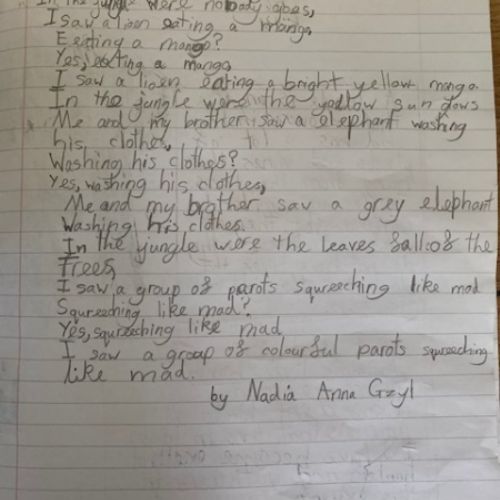 In the jungle were nobody goes,
I saw a lion eating a mango,
Eeating a mango?
Yes, eating a mango,
I saw a lioen eating a bright yellow mango.
In the jungle were the yellow sun glows
Me and my brother saw a elephant washing
his clothes,
Washing his clothes?
Yes, washing his clothes,
Me and my brother saw a grey elephant
Washing his clothes.
In the jungle were the leaves fall of the
Trees,
I saw a group of parots squreeching like mad
Squreeching like mad?
Yes, squreeching like mad
I saw a group of colourful parots squreeching
like mad.
by Nadia Anna Gzyl